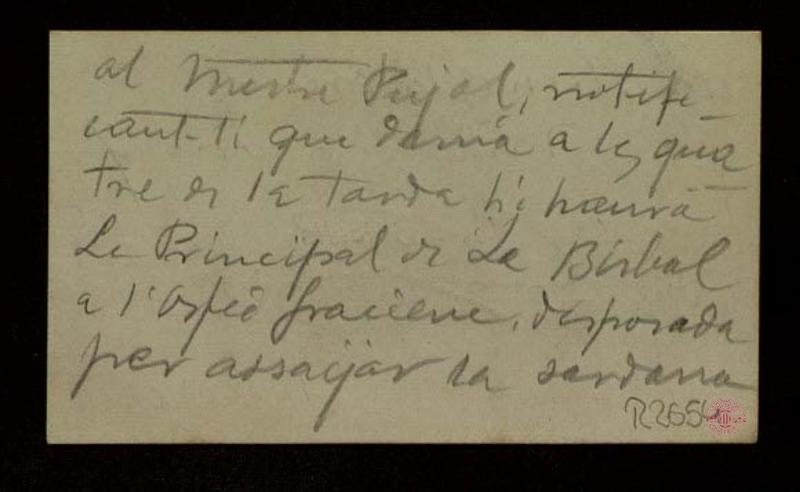 al Mestre Pujol, notifi-
cant-li que demà a les qua-
tre de la tarda hi haurà
La Principal de La Bisbal
a l'Orfeó Gracienc, disposada
per assaijar la sardana
R2654